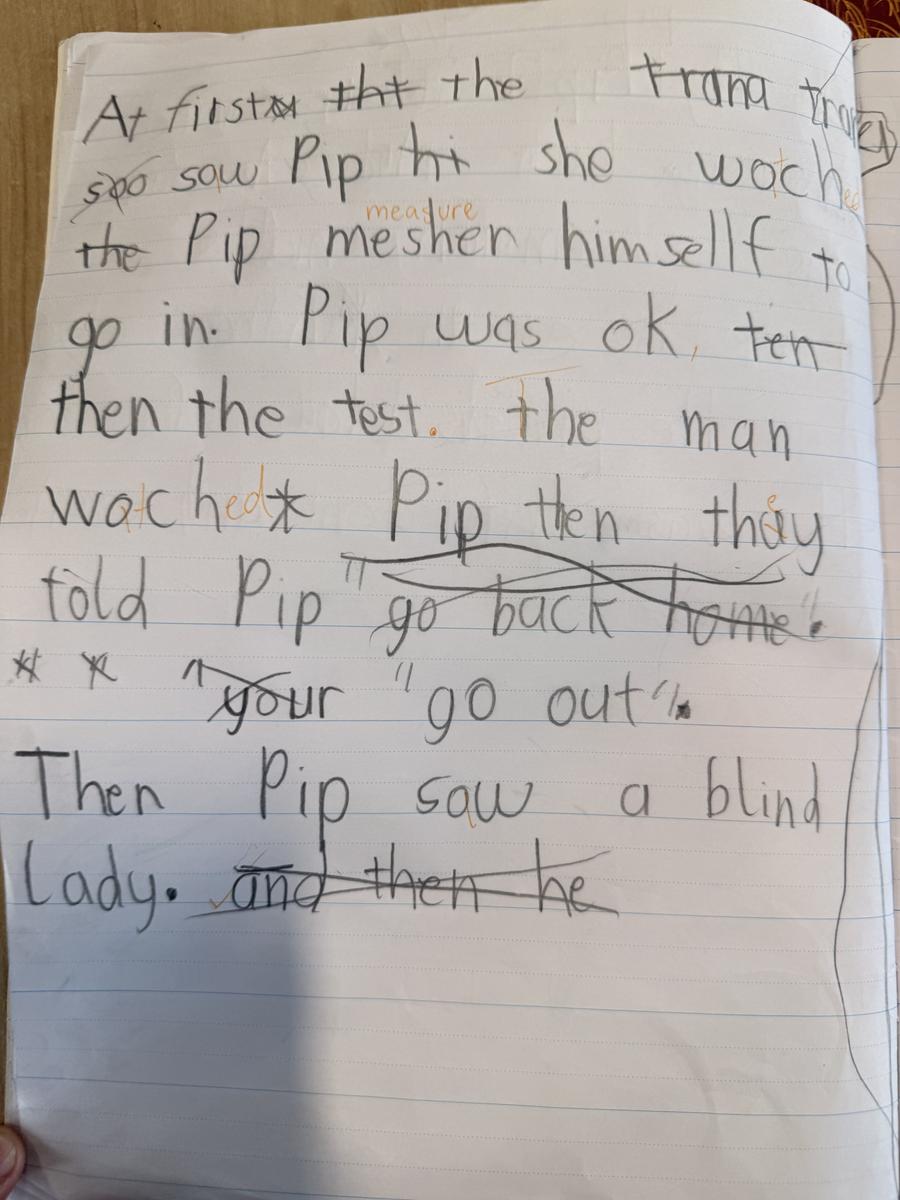 At first tht the trana
soo saw Pip hi she watched
measure
the Pip mesher himsellf to
go in. Pip was ok, ten
then the test. The man
watched* Pip then they
told Pip "go back home".
* * "your "go out".
Then Pip saw a blind
Lady. and then he